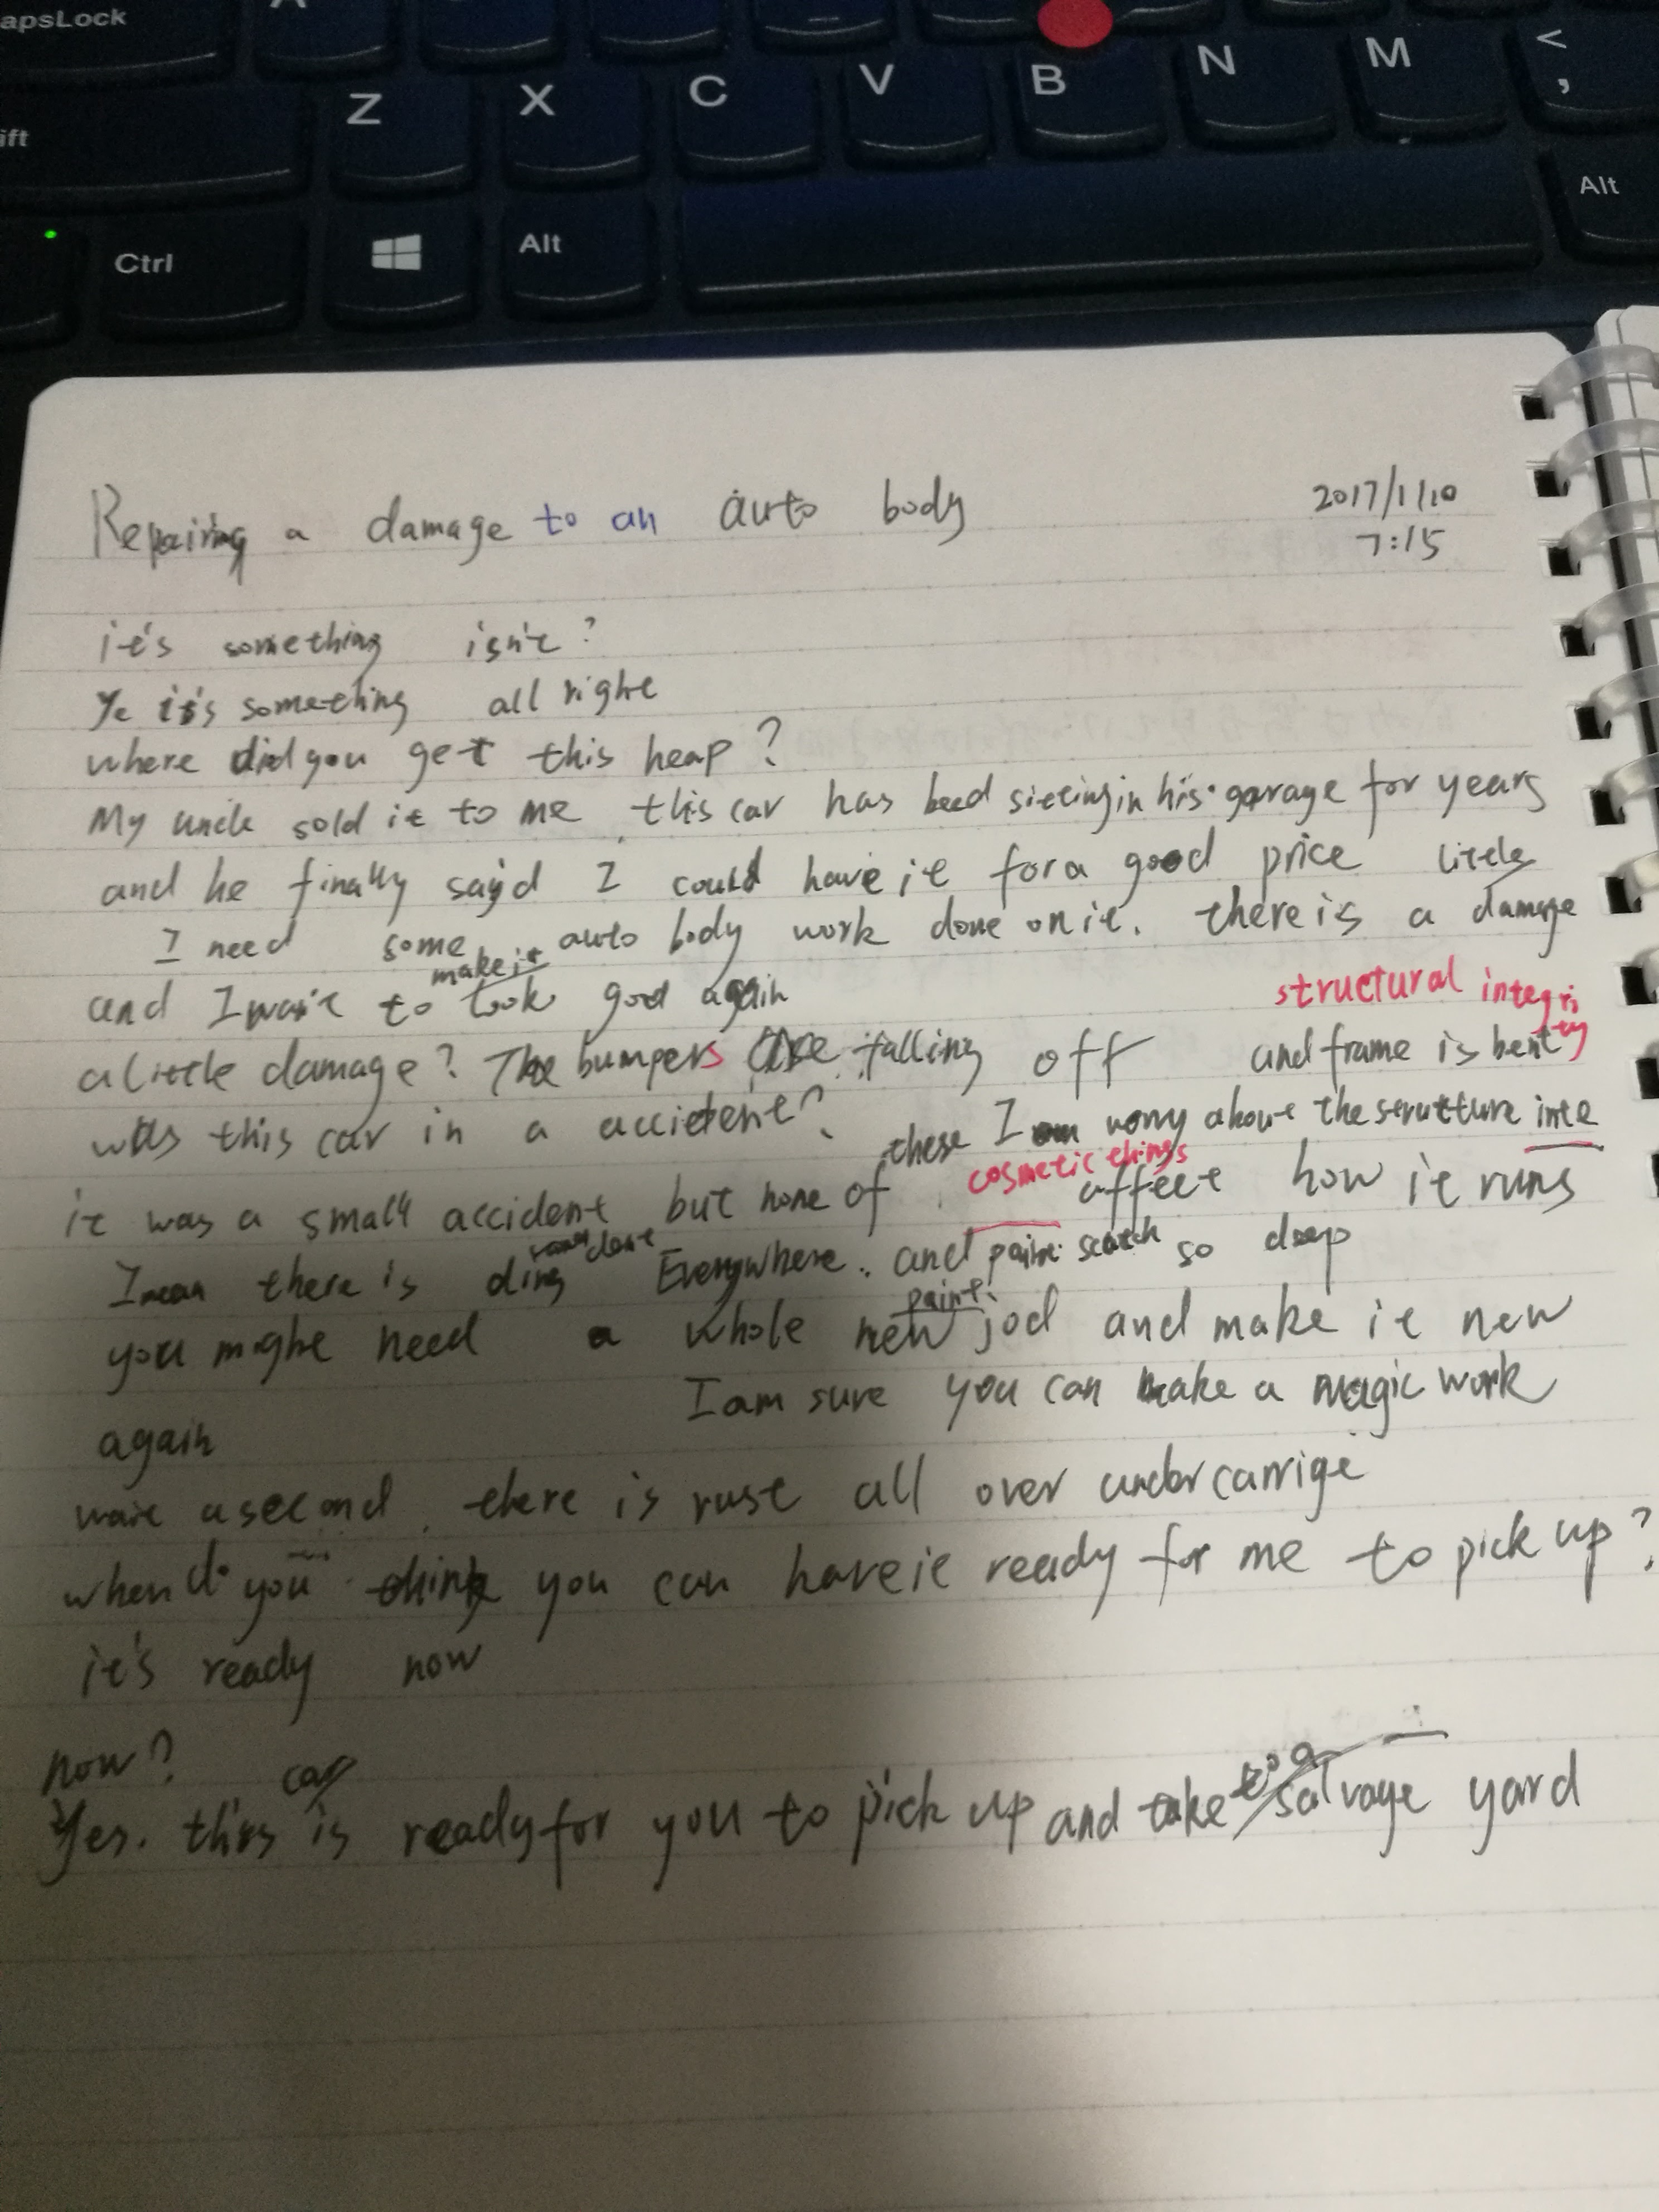 apsLock
Z X C V B N M < ,
ift
Alt
Ctrl Alt
Repairing a damage to an auto body 2017/1/10
7:15
it's something isn't?
Ye it's something all right
where did you get this heap?
My uncle sold it to me this car has beed sitting in his garage for years
and he finally sayd I could have it for a good price little
I need some auto body work done on it. there is a damage
make it
and I want to look good again
structural integri
ty
a little damage? The bumpers are falling off and frame is bent
was this car in a accident? these I worry about the strutture inte
cosmetic things
it was a small accident but none of affect how it runs
I mean there is ding dent Everywhere. and paint scratch so deep
paint
you might need a whole new jod and make it new
again I am sure you can make a magic work
wait a second, there is rust all over undercarrige
when do you think you can have it ready for me to pick up?
it's ready now
now?
car
Yes. this is ready for you to pick up and take to a salvage yard